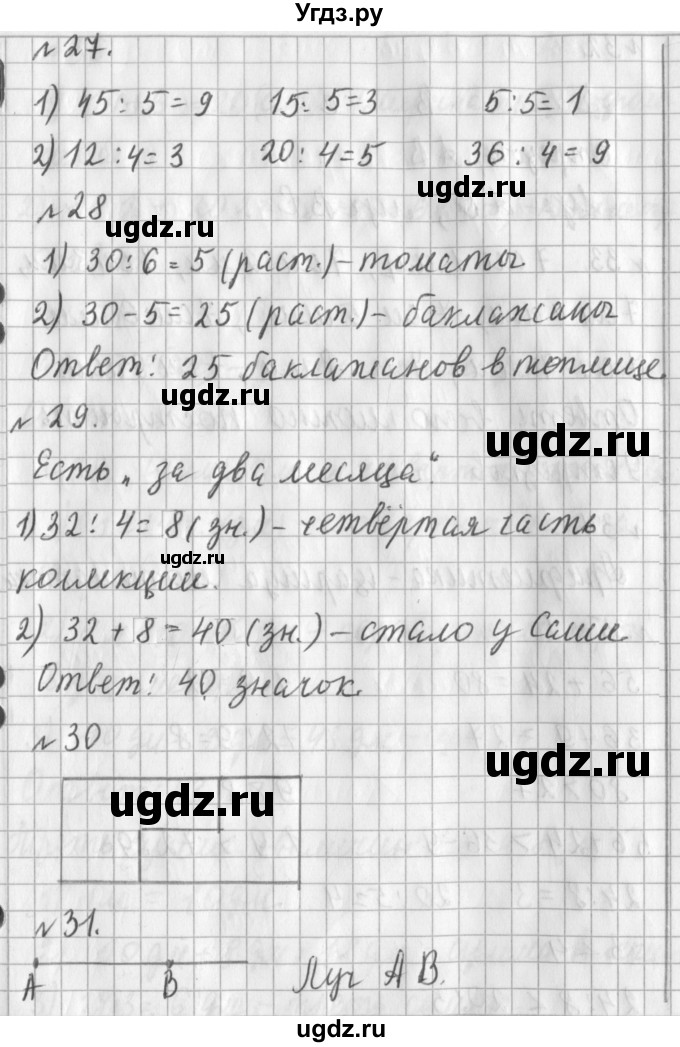 Угдз.ру
№27.
1) 45:5=9 15:5=3 5:5=1
2) 12:4=3 20:4=5 36:4=9
ugdz.ru
№28
ugdz.ru
1) 30:6=5 (раст.)-томаты
2) 30-5=25 (раст.)- баклажаны
ugdz.ru
Ответ: 25 баклажанов в теплице.
ugdz.ru
№29.
ugdz.ru
Есть „за два месяца“.
1) 32:4=8 (зн.)-четвёртая часть
ugdz.ru
коллекции.
2) 32+8=40 (зн.)-стало у Саши.
ugdz.ru
Ответ: 40 значок.
№30
ugdz.ru
ugdz.ru
№31.
A B Луч AB.
ugdz.ru